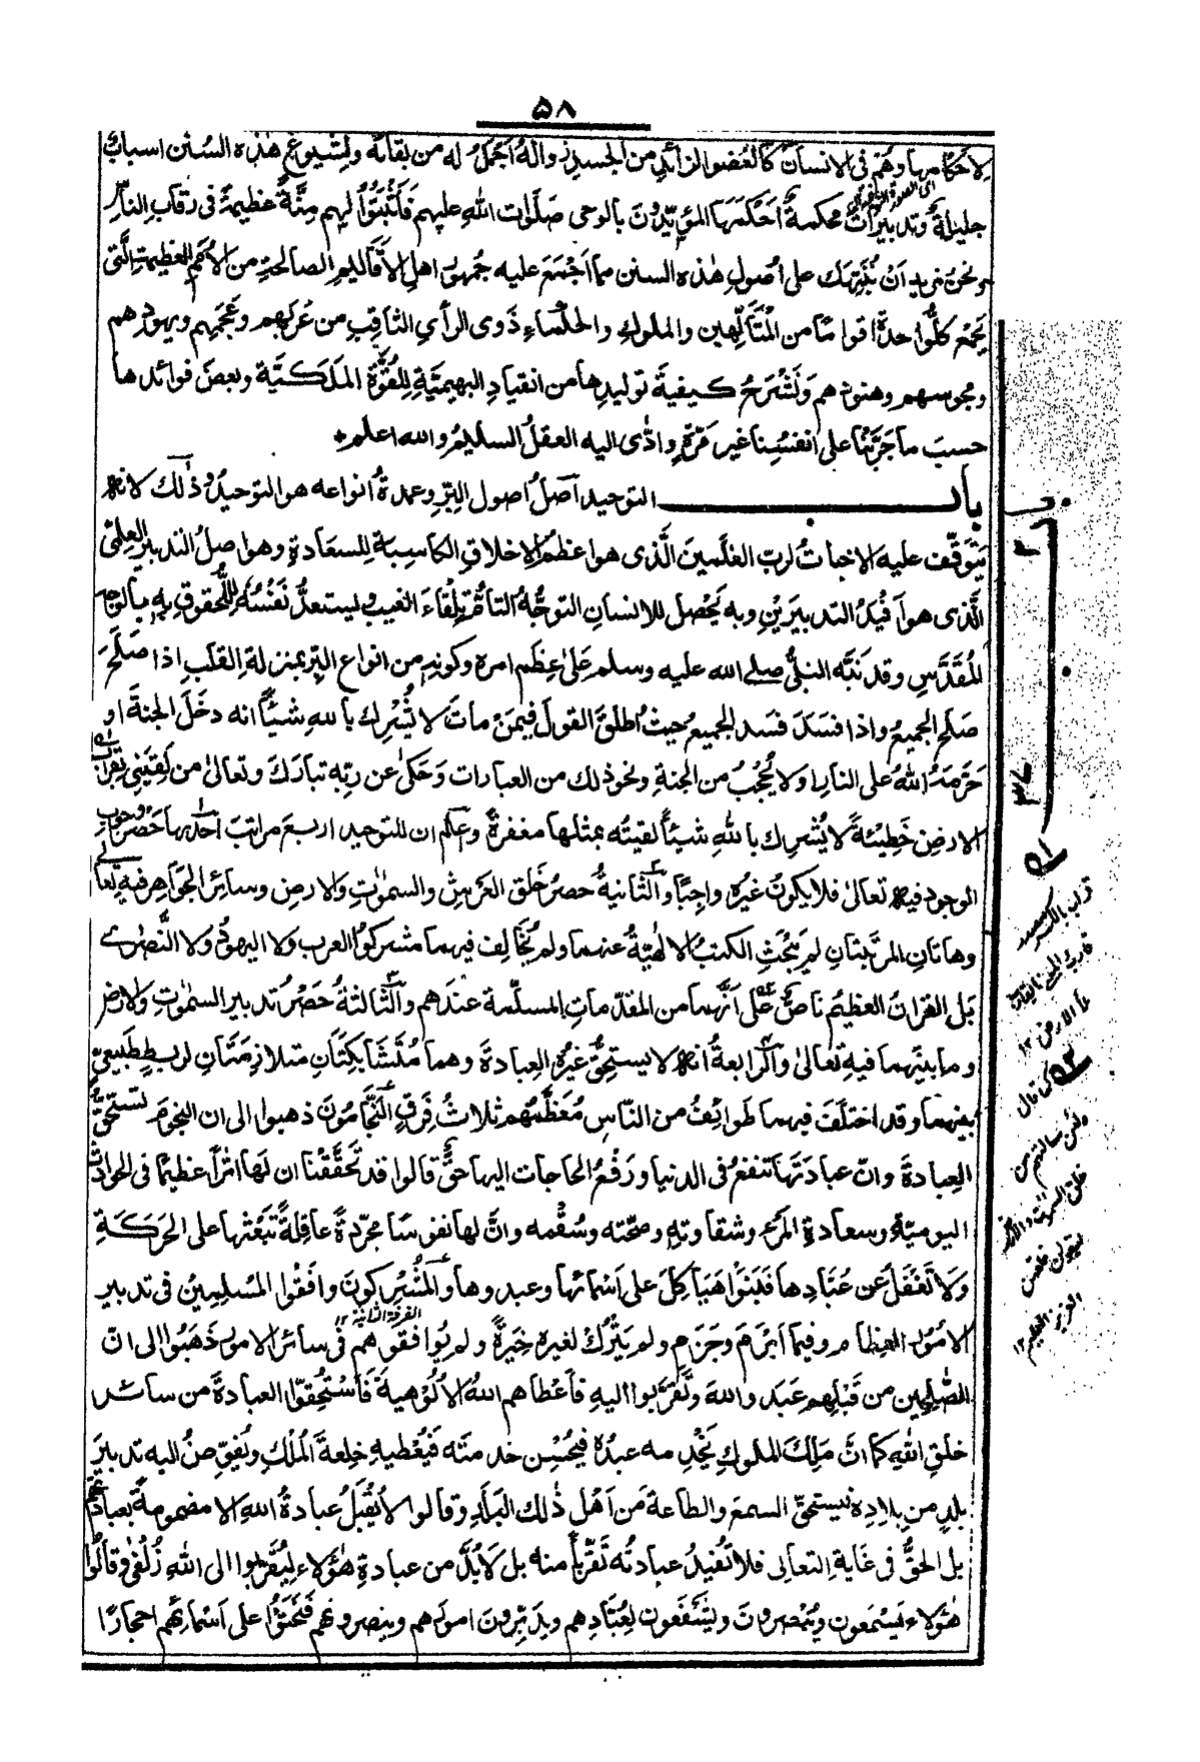 ۵۸
لاحكامها وهم فى الانسان كالعضو الزائد من الجسد زواله اجمل له من بقائه ولشيوع هذه السنن اسباب
جليلة وتدبيرات محكمة احكمها المؤيدون بالوحى صلوات الله عليهم فاثبتوا لهم منة عظيمة فى رقاب الناس
ونحن نريد ان ننبهك على اصول هذه السنن مما اجتمع عليه جمهور اهل الاقاليم الصالحة من الامم العظيمة التى
يجمع كل واحدة اقواما من المتألهين والملوك والحكماء ذوى الرأى الثاقب من عربهم وعجمهم ويهودهم
ومجوسهم وهنودهم ولنشرح كيفية توليدها من انقياد البهيمية للقوة الملكية وبعض فوائدها
حسب ما جربنا على انفسنا غير مرة وادى اليه العقل السليم والله اعلم
باب التوحيد اصل اصول البر وعمدة انواعه هو التوحيد وذلك لانه
يتوقف عليه الاخبات لرب العلمين الذى هو اعظم الاخلاق الكاسبة للسعادة وهو اصل التدبير العلمى
الذى هو افيد التدبيرين وبه يحصل للانسان التوجه التام تلقاء الغيب ويستعد نفسه للحوق به بالوجه
المقدس وقد نبه النبى صلى الله عليه وسلم على عظم امره وكونه من انواع البر بمنزلة القلب اذا صلح
صلح الجميع واذا فسد فسد الجميع حيث اطلق القول فيمن مات لا يشرك بالله شيئا انه دخل الجنة او
حرمه الله على النار او لا يحجب من الجنة ونحو ذلك من العبارات وحكى عن ربه تبارك وتعالى من لقينى بقراب
الارض خطيئة لا يشرك بالله شيئا لقيته بمثلها مغفرة واعلم ان للتوحيد اربع مراتب احدها حصر وجوب
الوجود فيه تعالى فلا يكون غيره واجبا والثانية حصر خلق العرش والسموت والارض وسائر الجواهر فيه تعالى
وهاتان المرتبتان لم يبحث الكتب الالهية عنهما ولم يخالف فيهما مشركوا العرب ولا اليهود ولا النصرى
بل القران العظيم ناص على انهما من المقدمات المسلمة عندهم والثالثة حصر تدبير السموت والارض
وما بينهما فيه تعالى والرابعة انه لا يستحق غيره العبادة وهما متشابكتان متلازمتان لربط طبيعى
بينهما وقد اختلف فيهما طوائف من الناس معظمهم ثلاث فرق النجامون ذهبوا الى ان النجوم تستحق
العبادة وان عبادتها تنفع فى الدنيا ورفع الحاجات اليها حق قالوا قد تحققنا ان لها اثرا عظيما فى الحوادث
اليومية وسعادة المرء وشقاوته وصحته وسقمه وان لها نفوسا مجردة عاقلة تبعثها على الحركة
ولا تغفل عن عبادها فبنوا هياكل على اسمائها وعبدوها والمشركون وافقوا المسلمين فى تدبير
الامور العظام وفيما ابرم وجزم ولم يترك لغيره خيرة ولم يوافقوهم فى سائر الامور ذهبوا الى ان
الفرقة الثانية ١٢
الصلحين من قبلهم عبدوا الله وتقربوا اليه فاعطاهم الله الالوهية فاستحقوا العبادة من سائر
خلق الله كما ان ملك الملوك يخدمه عبده فيحسن خدمته فيعطيه خلعة الملك ويفوض اليه تدبير
بلد من بلاده فيستحق السمع والطاعة من اهل ذلك البلد وقالوا لا تقبل عبادة الله الا مضمومة بعبادتهم
بل الحق فى غاية التعالى فلا تفيد عبادته تقربا منه بل لا بد من عبادة هؤلاء ليقربوا الى الله زلفى وقالوا
هؤلاء يسمعون ويبصرون ويشفعون لعبادهم ويدبرون امورهم وينصرونهم فنحتوا على اسمائهم احجارا
قراب بالكسر
ملأ الارض ١٢
كما قال
ولئن سألتهم من
خلق السموت والارض
ليقولن خلقهن
العزيز العليم ١٢